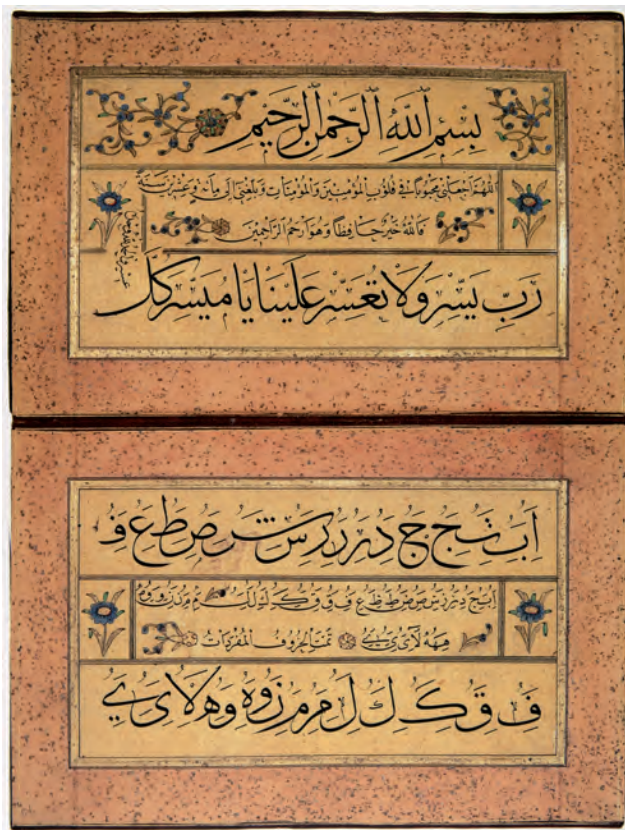 بِسْمِ اللَّهِ الرَّحْمٰنِ الرَّحِيمِ
اللهم اجعلني محبوبا في قلوب المؤمنين والمؤمنات وبلغني الى وعشرين سنة
فالله خير حافظا وهو ارحم الراحمين
رَبِّ يَسِّرْ وَلَا تُعَسِّرْ عَلَيْنَا يَا مُيَسِّرَ كُلِّ
ا ب ت ج ج د ر ر ر س ص ط ع ف
ا ب ج د ر ر س ص ط ع ف ق ك ل
لا ى تمت الحروف المفردات
ف ق ك ل م م ن و ه و ه لا ى ي